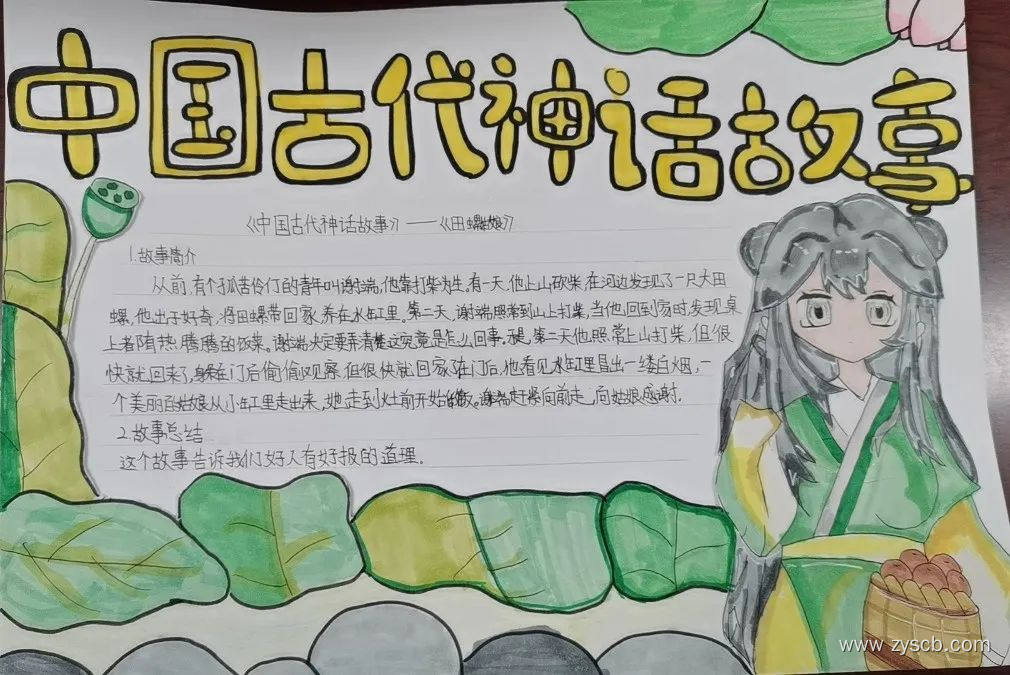 中国古代神话故事
《中国古代神话故事》——《田螺姑娘》
1.故事简介
从前,有个孤苦伶仃的青年叫谢端,他靠打柴为生,有一天,他上山砍柴,在河边发现了一只大田
螺,他出于好奇,将田螺带回家,养在水缸里。第二天,谢端照常到山上打柴,当他回到家时发现桌
上者陏热腾腾的饭菜。谢端决定要弄清楚这究竟是怎么回事。于是,第二天他照常上山打柴,但很
快就回来了,躲在门后偷偷观察,但很快就回家躲在门后,他看见水缸里冒出一缕白烟,一
个美丽的姑娘从水缸里走出来,她走到灶前开始做饭。谢端赶紧向前走,向姑娘感谢.
2.故事总结
这个故事告诉我们好人有好报的道理。
www.zyscb.com